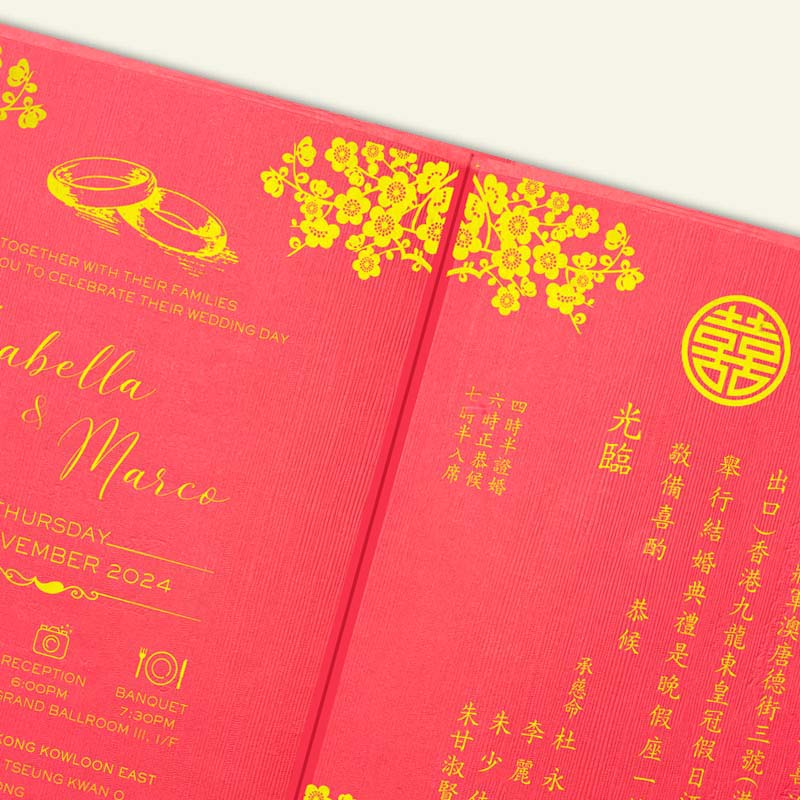 TOGETHER WITH THEIR FAMILIES
OU TO CELEBRATE THEIR WEDDING DAY
abella
&
Marco
THURSDAY
VEMBER 2024
RECEPTION
6:00PM
BANQUET
7:30PM
GRAND BALLROOM III, 1/F
KONG KOWLOON EAST
TSEUNG KWAN O
ONG
囍
軍澳唐德街三號(港
出口)香港九龍東皇冠假日
舉行結婚典禮是晚假座一
敬備喜酌 恭候
光臨
承慈命
杜永
李麗
朱少
朱甘淑賢
四時半證婚
六時正恭候
七時半入席